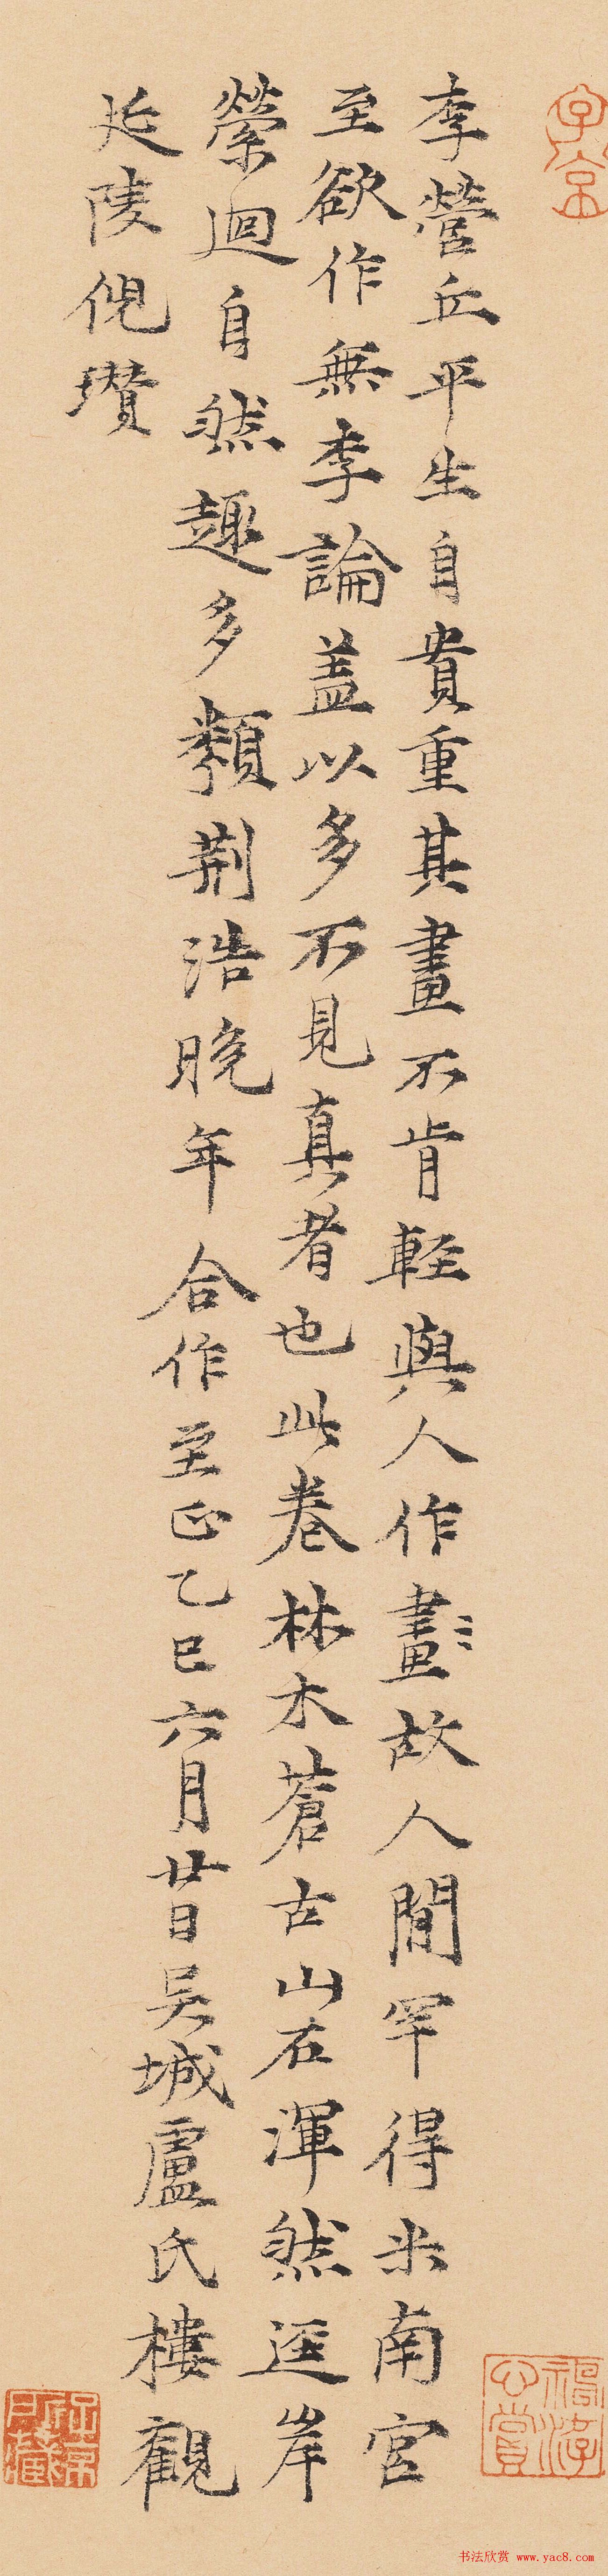 李營丘平生自貴重其畫不肯輕與人作畫故人間罕得米南宮
至欲作無李論蓋以多不見真者也此卷林木蒼古山石渾然逕岸
縈迴自然趣多類荆浩晚年合作至正乙巳六月廿日吴城盧氏樓觀
延陵倪瓚
书法欣赏 www.yac8.com